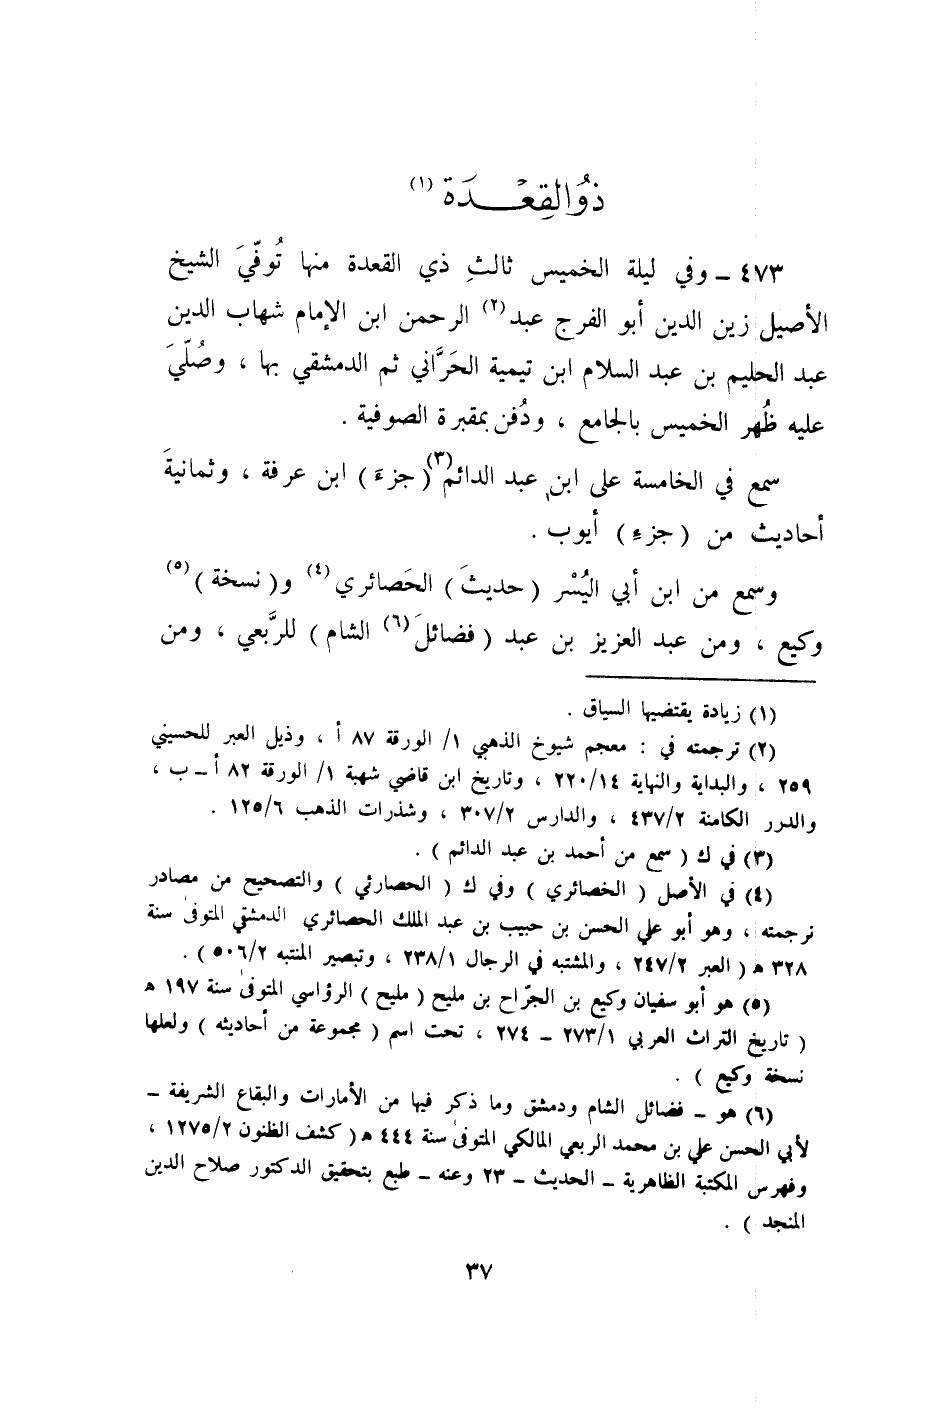 ذُو القِعْدَة (١)
٤٧٣ ـ وفي ليلة الخميس ثالثِ ذي القعدة منها تُوفّيَ الشيخ
الأصيل زين الدين أبو الفرج عبد (٢) الرحمن ابن الإمام شهاب الدين
عبد الحليم بن عبد السلام ابن تيمية الحَرَّاني ثم الدمشقي بها ، وصُلّيَ
عليه ظُهر الخميس بالجامع ، ودُفن بمقبرة الصوفية .
سمع في الخامسة على ابن عبد الدائم (٣) ( جزءَ ) ابن عرفة ، وثمانيةَ
أحاديث من ( جزء ) أيوب .
وسمع من ابن أبي اليُسْر ( حديثَ ) الحَصائري (٤) و( نسخة ) (٥)
وكيع ، ومن عبد العزيز بن عبد ( فضائلَ (٦) الشام ) للرَّبعي ، ومن
(١) زيادة يقتضيها السياق .
(٢) ترجمته في : معجم شيوخ الذهبي ١/ الورقة ٨٧ أ ، وذيل العبر للحسيني
٢٥٩ ، والبداية والنهاية ٢٢٠/١٤ ، وتاريخ ابن قاضي شهبة ١/ الورقة ٨٢ أ ـ ب ،
والدرر الكامنة ٤٣٧/٢ ، والدارس ٣٠٧/٢ ، وشذرات الذهب ١٢٥/٦ .
(٣) في ك ( سمع من أحمد بن عبد الدائم ) .
(٤) في الأصل ( الخصائري ) وفي ك ( الحصارئي ) والتصحيح من مصادر
ترجمته ، وهو أبو علي الحسن بن حبيب بن عبد الملك الحصائري الدمشقي المتوفى سنة
٣٢٨ هـ ( العبر ٢٤٧/٢ ، والمشتبه في الرجال ٢٣٨/١ ، وتبصير المنتبه ٥٠٦/٢ ) .
(٥) هو أبو سفيان وكيع بن الجرّاح بن مليح ( مليح ) الرؤاسي المتوفى سنة ١٩٧ هـ
( تاريخ التراث العربي ٢٧٣/١ ـ ٢٧٤ ، تحت اسم ( مجموعة من أحاديثه ) ولعلها
نسخة وكيع ) .
(٦) هو ـ فضائل الشام ودمشق وما ذكر فيها من الأمارات والبقاع الشريفة ـ
لأبي الحسن علي بن محمد الربعي المالكي المتوفى سنة ٤٤٤ هـ ( كشف الظنون ١٢٧٥/٢ ،
وفهرس المكتبة الظاهرية ـ الحديث ـ ٢٣ وعنه ـ طبع بتحقيق الدكتور صلاح الدين
المنجد ) .
٣٧